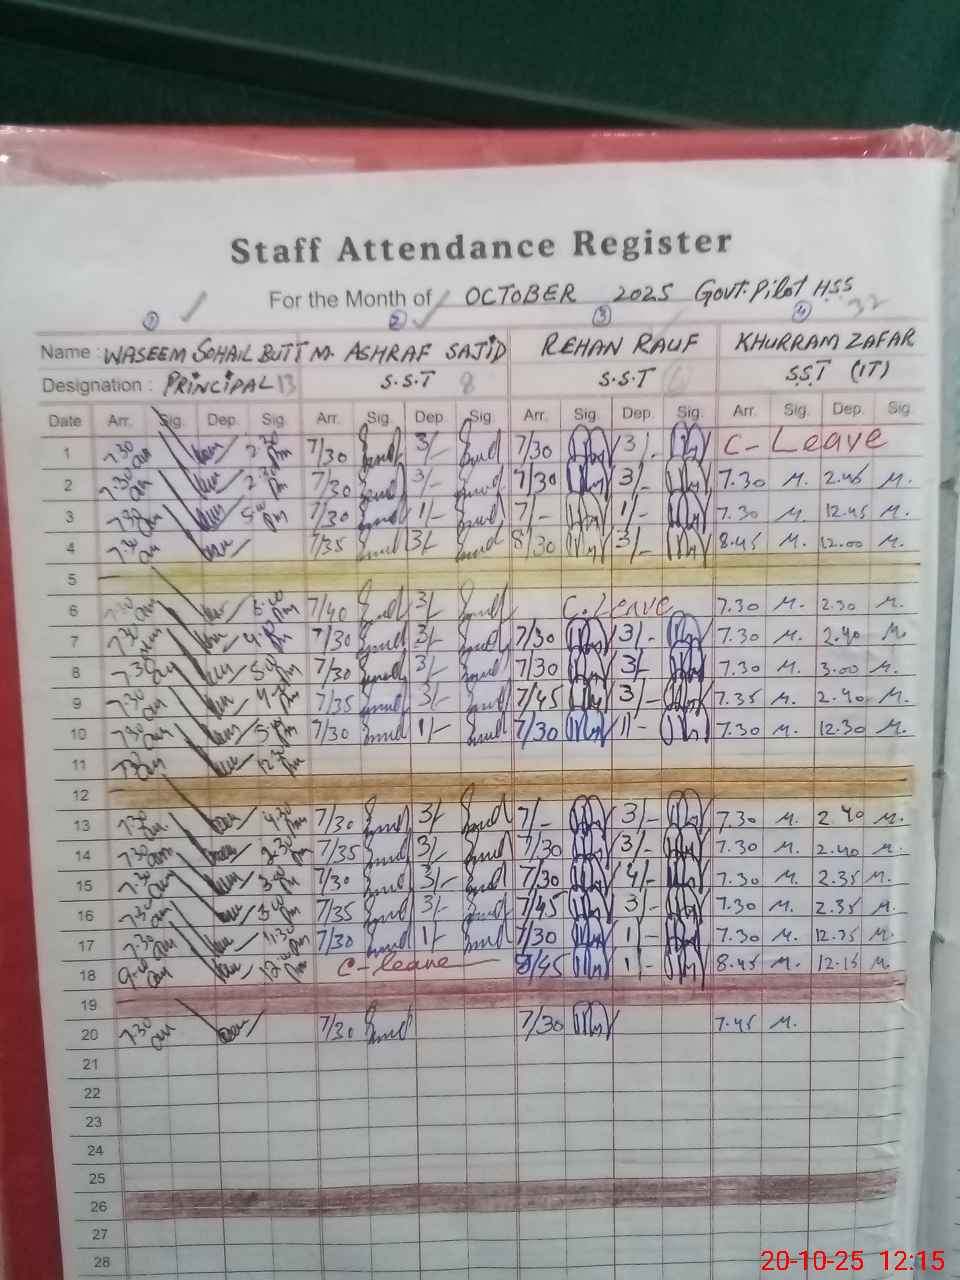 Staff Attendance Register
For the Month of OCTOBER 2025 Govt. Pilot HSS
32
1 2 3 4
Name : WASEEM SOHAIL BUTT M. ASHRAF SAJID REHAN RAUF KHURRAM ZAFAR
Designation : PRINCIPAL 13 S.S.T 8 S.S.T SST (IT)
Date Arr. Sig. Dep. Sig. Arr. Sig. Dep. Sig. Arr. Sig. Dep. Sig. Arr. Sig. Dep. Sig.
1 7.30 am 2.30 pm 7/30 3/- 7/30 3/. C-Leave
2 7.30 am 7/30 3/- 7/30 3/- 7.30 M. 2.45 M.
3 7.30 am pm 7/30 1/- 7/- 1/- 7.30 M. 12.45 M.
4 7.30 am 7/35 3/- 8/30 3/- 8.45 M. 12.00 M.
5
6 7.30 am pm 7/40 3/ C. Leave 7.30 M. 2.30 M.
7 7.30 am pm 7/30 3/- 7/30 3/- 7.30 M. 2.40 M.
8 7.30 am pm 7/30 3/- 7/30 3/- 7.30 M. 3.00 M.
9 7.30 am pm 7/35 3/- 7/45 3/- 7.35 M. 2.40 M.
10 7.30 am pm 7/30 1/- 7/30 1/- 7.30 M. 12.30 M.
11 7.30 am pm
12
13 7.30 am 4.30 pm 7/30 3/- 7/- 3/- 7.30 M. 2.40 M.
14 7.30 am pm 7/35 3/- 7/30 3/- 7.30 M. 2.40 M.
15 7.30 am pm 7/30 3/- 7/30 4/- 7.30 M. 2.35 M.
16 7.30 am pm 7/35 3/- 7/45 3/- 7.30 M. 2.35 M.
17 7.30 am pm 7/30 1/- 7/30 1/- 7.30 M. 12.35 M.
18 am pm C-leave 8/45 1/- 8.45 M. 12.15 M.
19
20 7.30 am 7/30 7/30 7.45 M.
21
22
23
24
25
26
27
28
20-10-25 12:15